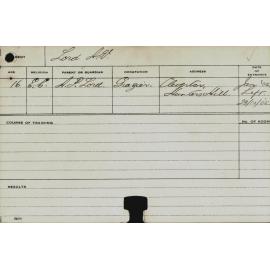 Lord A.W.
AGE RELIGION PARENT OR GUARDIAN OCCUPATION ADDRESS DATE OF ENTRANCE
16 C.E. A. P. Lord. Grazier. Clayton,
Hunters Hill
COURSE OF TRAINING No. OF ADDR
RESULTS